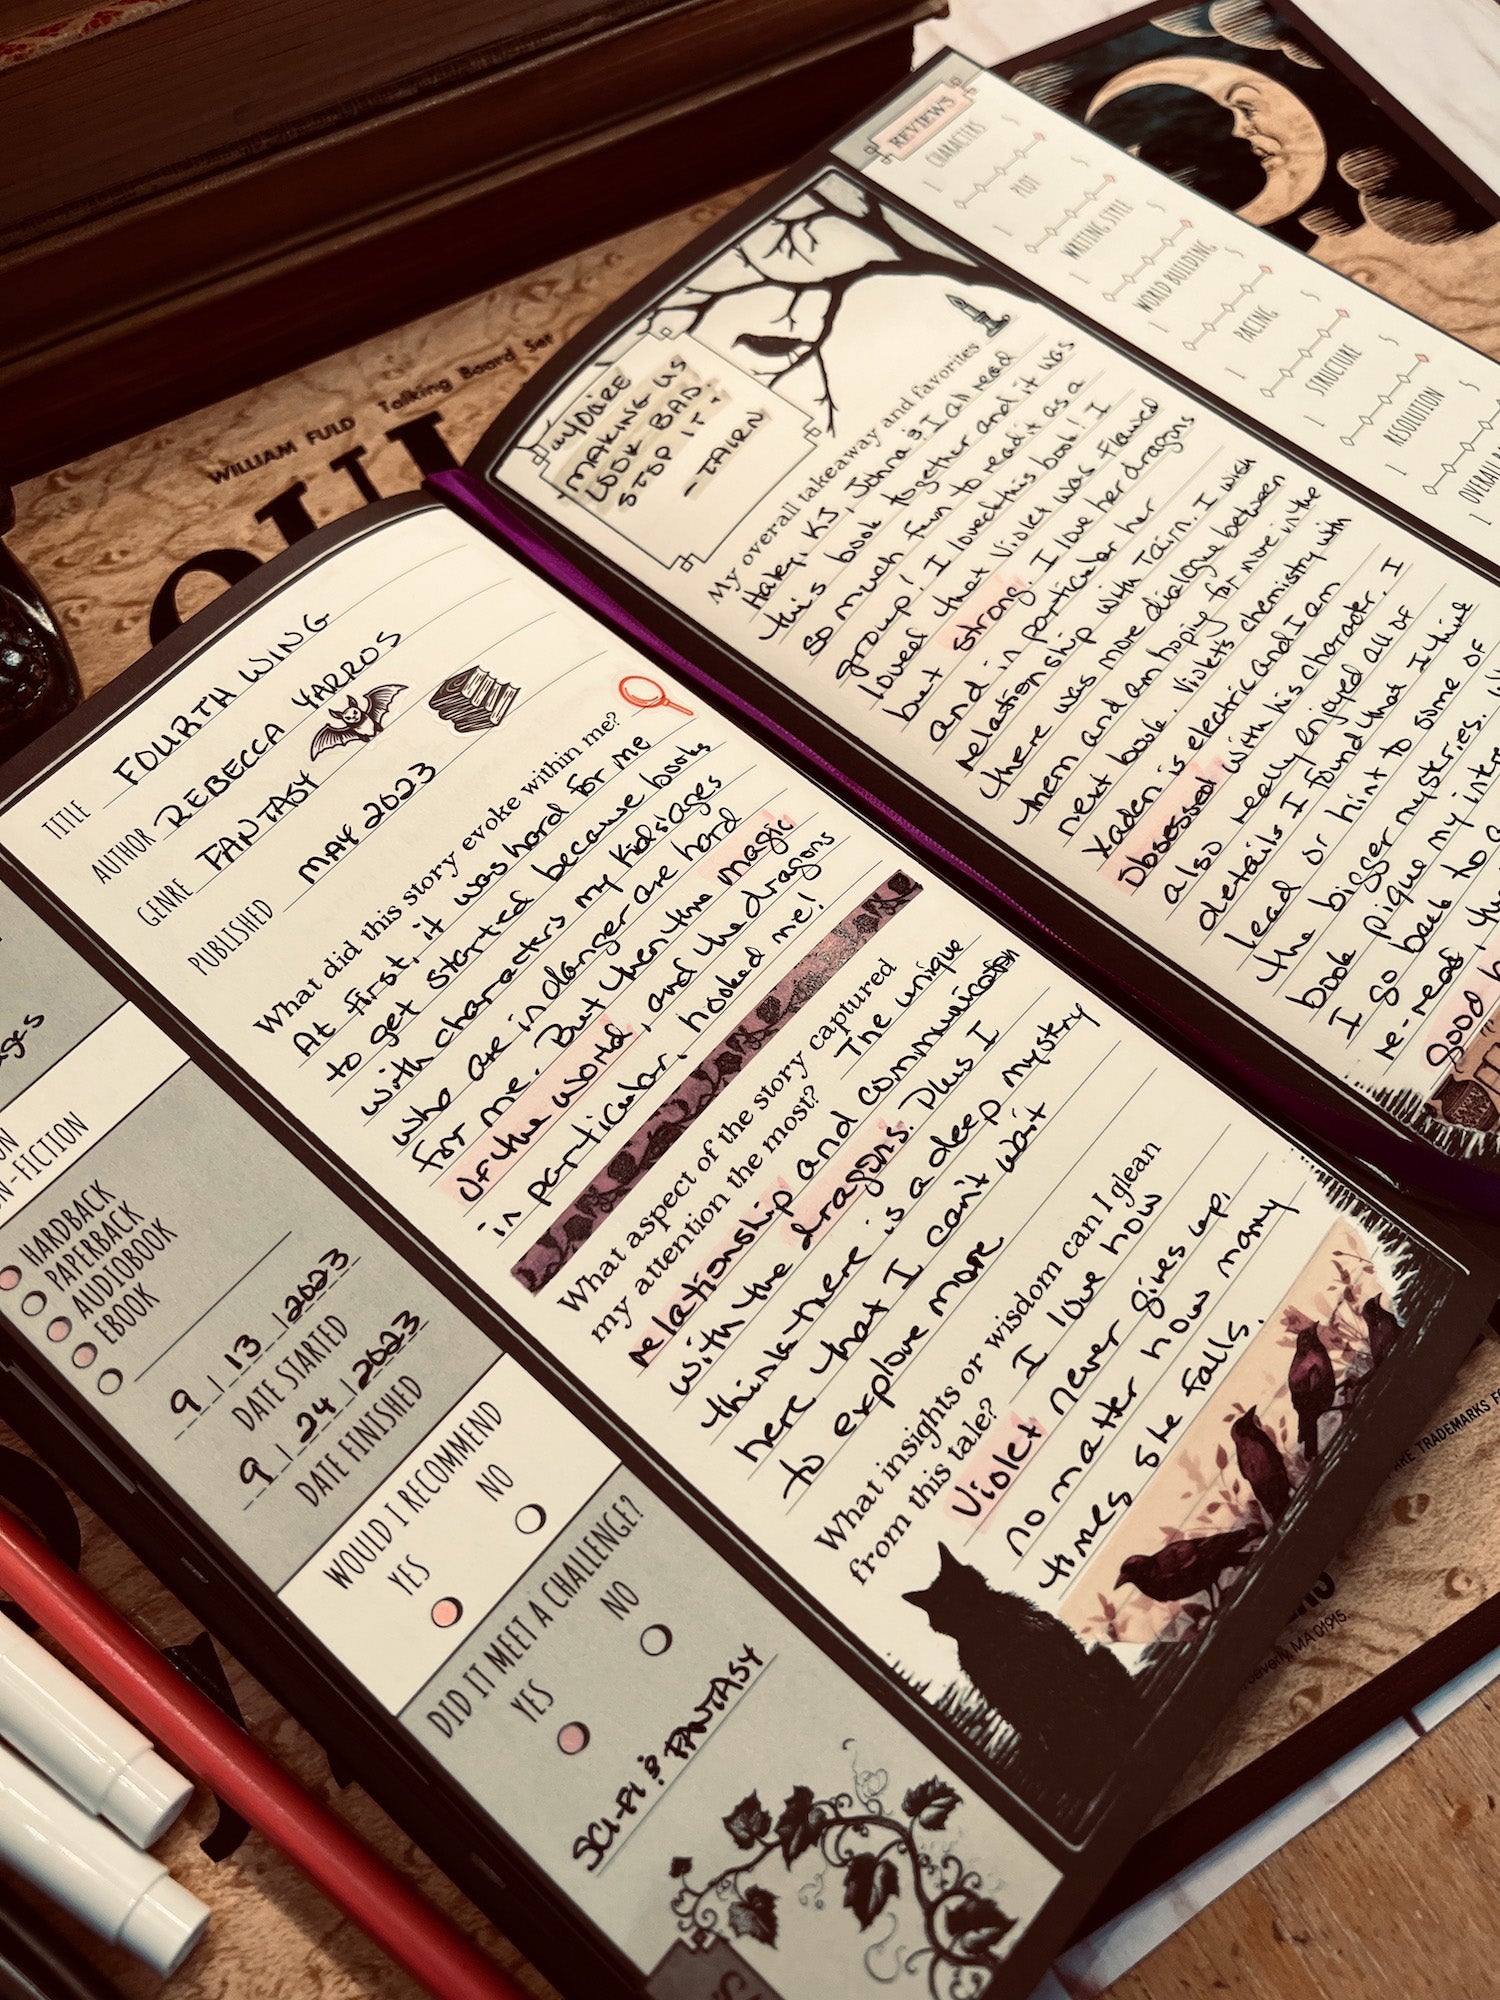 WILLIAM FULD Talking Board Set
TITLE FOURTH WING
AUTHOR REBECCA YARROS
GENRE FANTASY
PUBLISHED MAY 2023
What did this story evoke within me?
At first, it was hard for me
to get started because books
with characters my kids' ages
who are in danger are hard
for me. But then the magic
of the world, and the dragons
in particular, hooked me!
What aspect of the story captured
my attention the most? The unique
relationship and communication
with the dragons. Plus I
think there is a deep mystry
here that I can't wait
to explore more
What insights or wisdom can I glean
from this tale? I love how
Violet never gives up,
no matter how many
times she falls.
FICTION
HARDBACK
PAPERBACK
AUDIOBOOK
EBOOK
9 | 13 | 2023
DATE STARTED
9 | 24 | 2023
DATE FINISHED
WOULD I RECOMMEND
YES NO
DID IT MEET A CHALLENGE?
YES NO
SCI-FI & FANTASY
MAKING US
LOOK BAD.
STOP IT.
-TAIRN
My overall takeaway and favorites
Haley, KJ, Johna & I all read
this book together and it was
so much fun to read it as a
group! I loved this book! I
loved that Violet was flawed
but strong. I love her dragons
and in particular her
relationship with Tairn. I wish
there was more dialogue between
them and am hoping for more in the
next book. Violet's chemistry with
Xaden is electric and I am
obsessed with his character. I
also really enjoyed all of
details I found that I think
lead or hint to some of
the bigger mysteries.
book pique my
I go back to a
re-read,
good
REVIEWS
CHARACTERS
1 5
PLOT
1 5
WRITING STYLE
1 5
WORLD BUILDING
1 5
PACING
1 5
STRUCTURE
1 5
RESOLUTION
1
OVERALL
1
TRADEMARKS
MA 01915